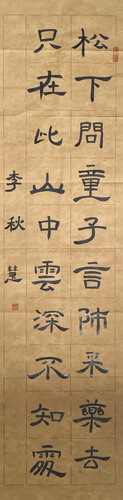 松下問童子言師采藥去
只在此山中雲深不知處
李秋慧